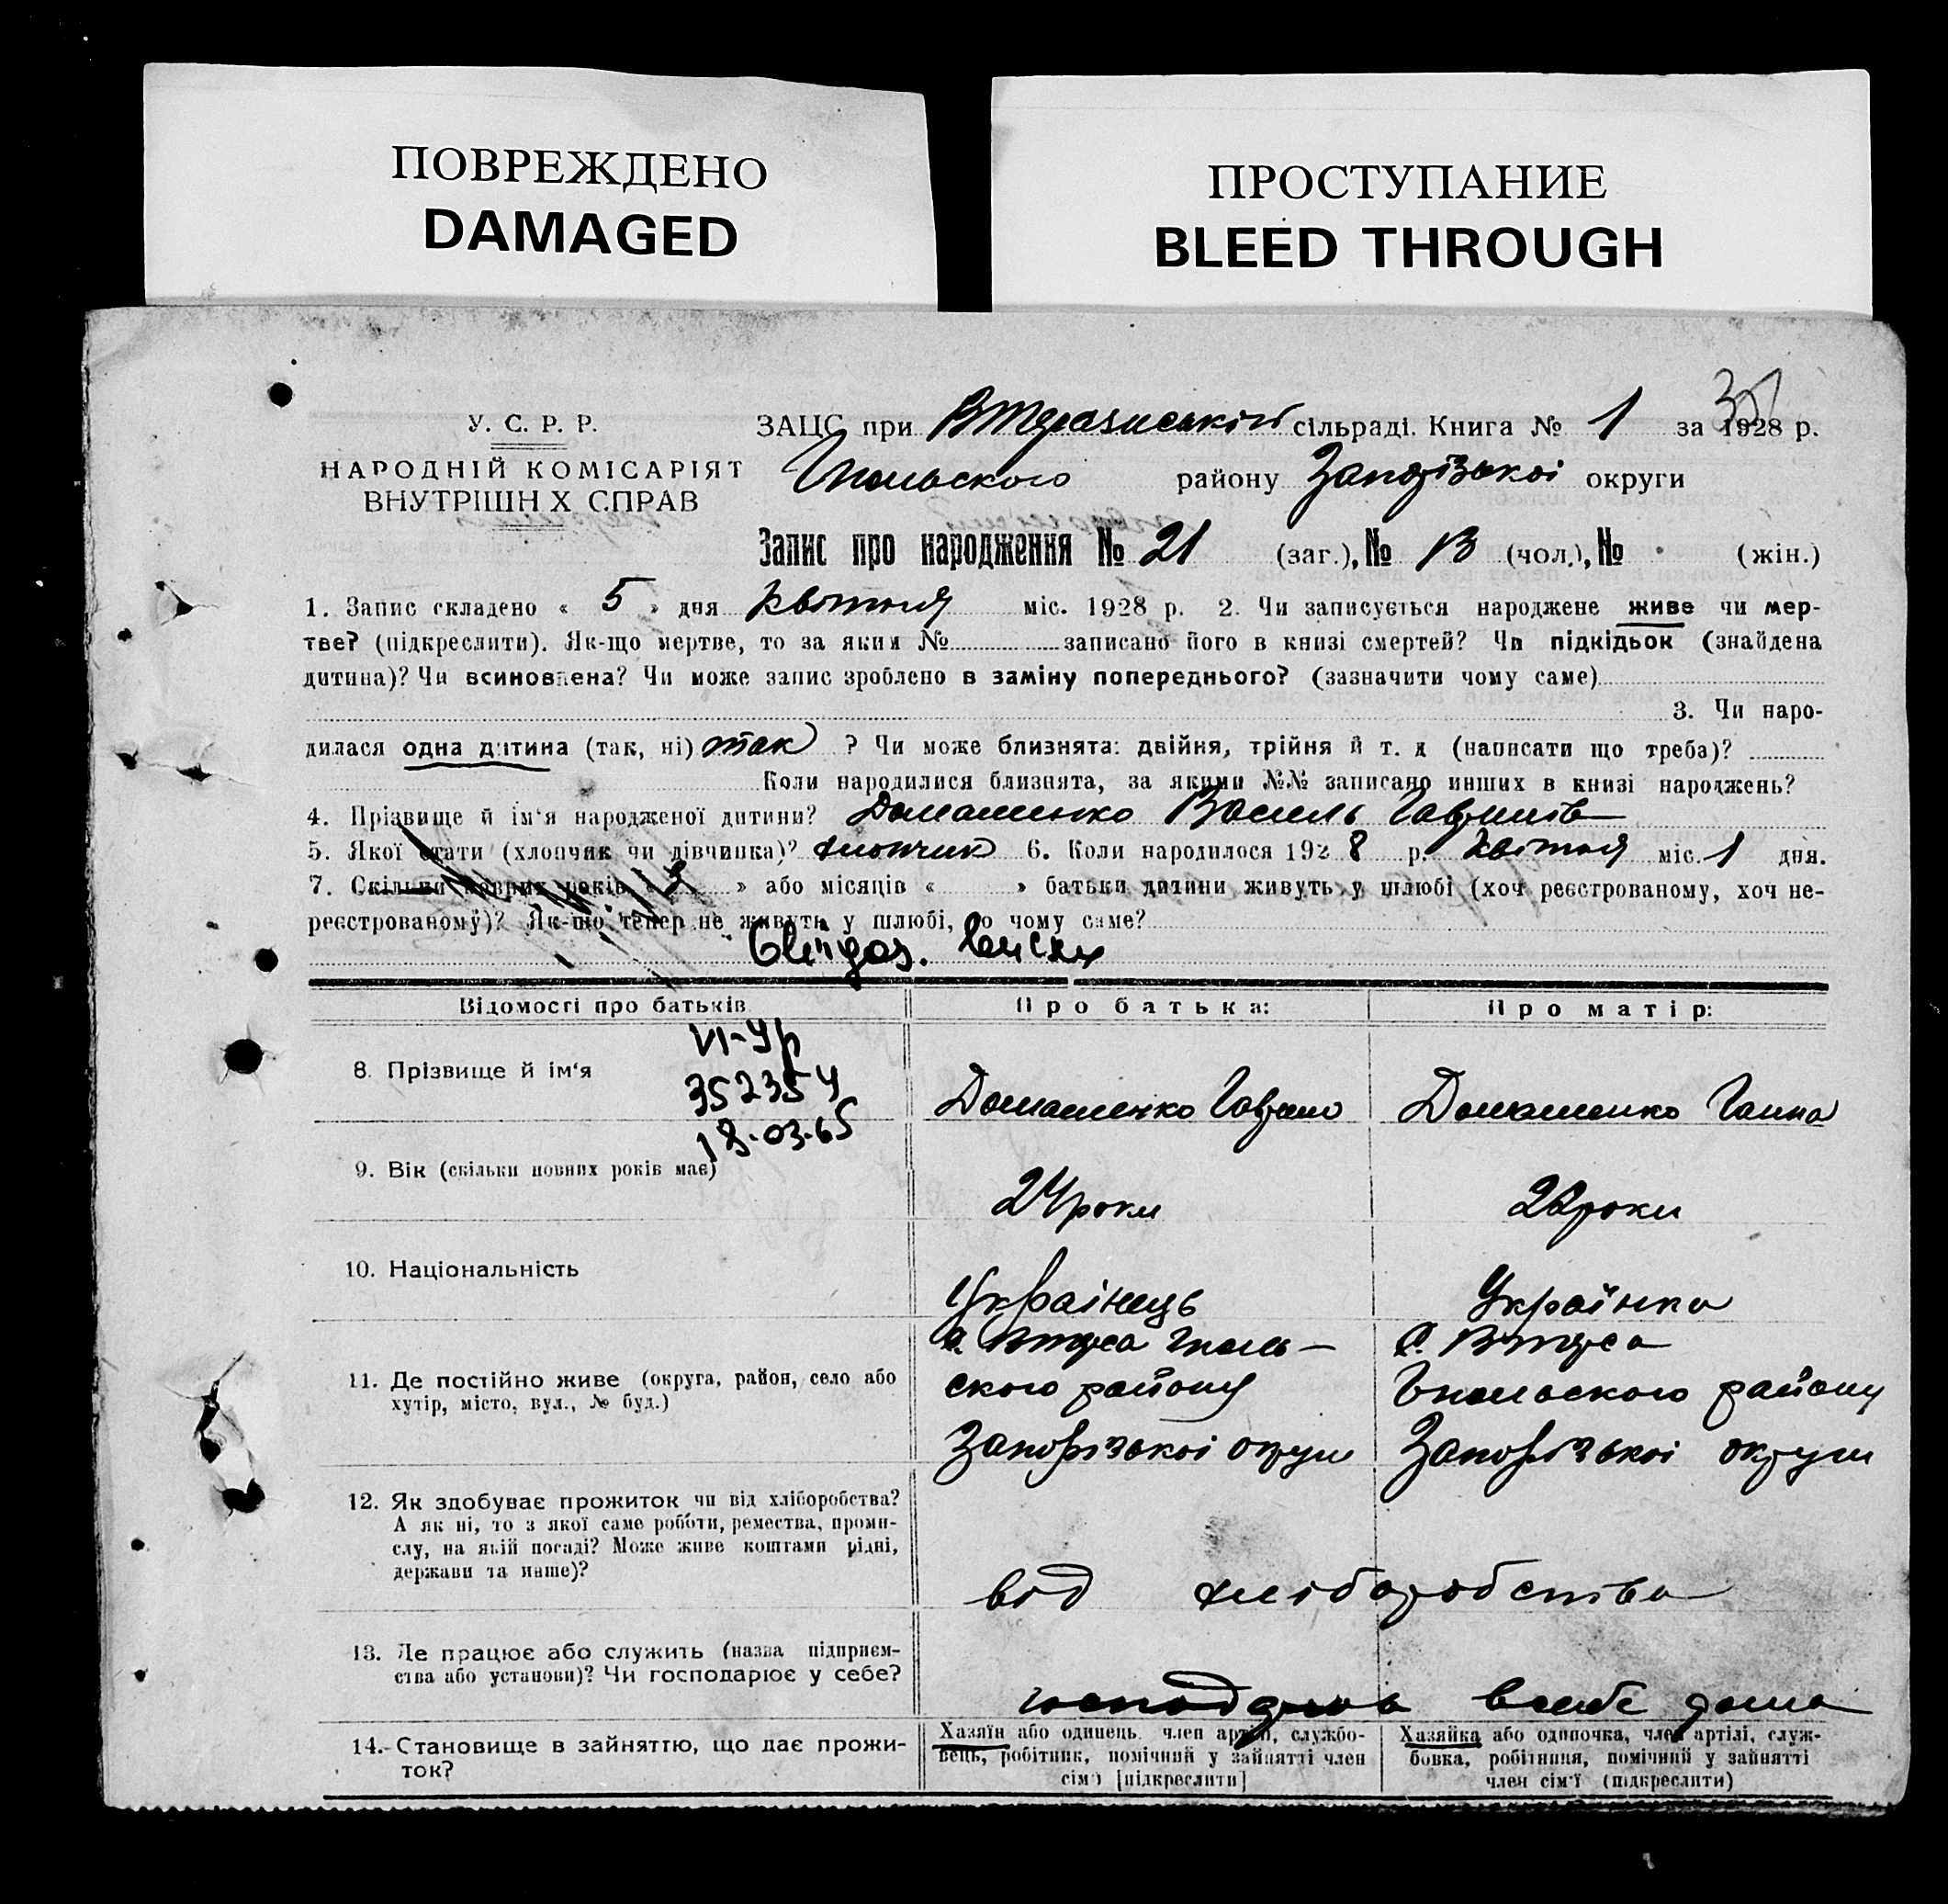 ПОВРЕЖДЕНО
DAMAGED
ПРОСТУПАНИЕ
BLEED THROUGH
У. С. Р. Р.
НАРОДНІЙ КОМІСАРІЯТ
ВНУТРІШН Х СПРАВ
ЗАЦС при сільраді. Книга № 1 за 1928 р.
району Запорізької округи
Запис про народження № 21 (заг.), № 13 (чол.), № (жін.)
1. Запис складено « 5 » дня квітня міс. 1928 р. 2. Чи записується народжене живе чи мер-
тве? (підкреслити). Як-що мертве, то за яким № записано його в книзі смертей? Чи підкідьок (знайдена
дитина)? Чи всиновлена? Чи може запис зроблено в заміну попереднього? (зазначити чому саме)
3. Чи наро-
дилася одна дитина (так, ні) так ? Чи може близнята: двійня, трійня й т. д (написати що треба)?
Коли народилися близнята, за якими №№ записано инших в книзі народжень?
4. Прізвище й ім'я народженої дитини? Домашенко Василь Гаврилів
5. Якої стати (хлопчик чи дівчинка)? хлопчик 6. Коли народилося 1928 р. квітня міс. 1 дня.
7. Скільки повних років « 3 » або місяців « » батьки дитини живуть у шлюбі (хоч реєстрованому, хоч не-
реєстрованому)? Як-що тепер не живуть у шлюбі, то чому саме?
Відомості про батьків
Про батька:
Про матір:
VI-УР
352354
18.03.65
8. Прізвище й ім'я
Домашенко Гаврило
Домашенко Ганна
9. Вік (скільки повних років має)
24 роки
22 роки
10. Національність
Українець
Українка
11. Де постійно живе (округа, район, село або
хутір, місто, вул., № буд.)
ского району
Запорізької округи
району
Запорізької округи
12. Як здобуває прожиток чи від хліборобства?
А як ні, то з якої саме роботи, ремества, проми-
слу, на якій посаді? Може живе коштами рідні,
держави та инше)?
від хліборобства
13. Де працює або служить (назва підприєм-
ства або установи)? Чи господарює у себе?
14. Становище в зайняттю, що дає прожи-
ток?
Хазяїн або одинець член артілі, службо-
вець, робітник, помічний у зайнятті член
сім'ї [підкреслити]
Хазяйка або одиночка, член артілі, служ-
бовка, робітниця, помічний у зайнятті
член сім'ї (підкреслити)